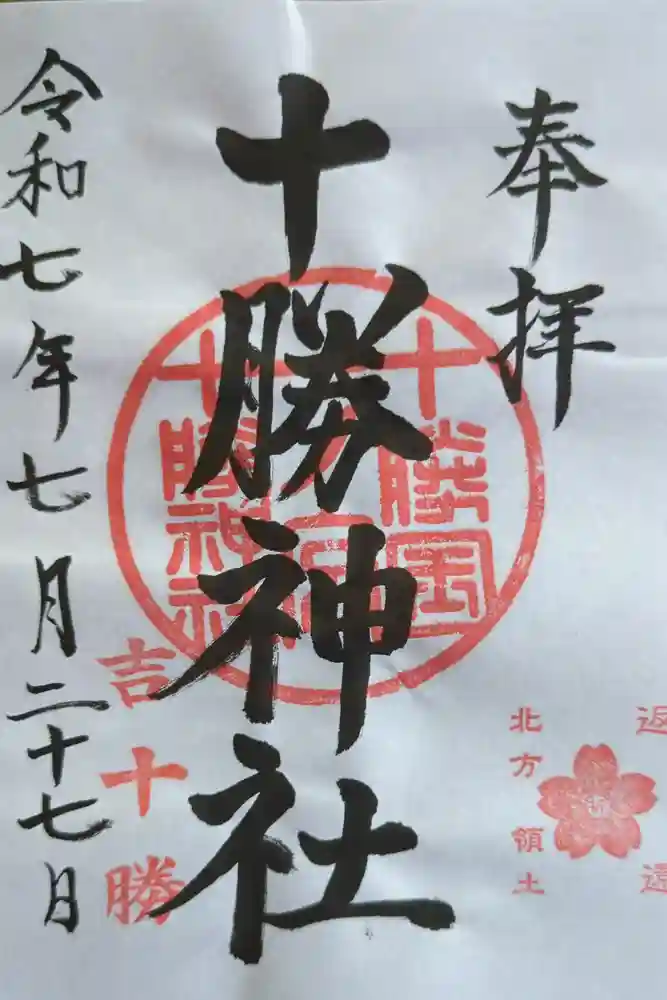 奉拝
十勝神社
十勝国
十勝神社
令和七年七月二十七日
吉十勝
返還
北方領土